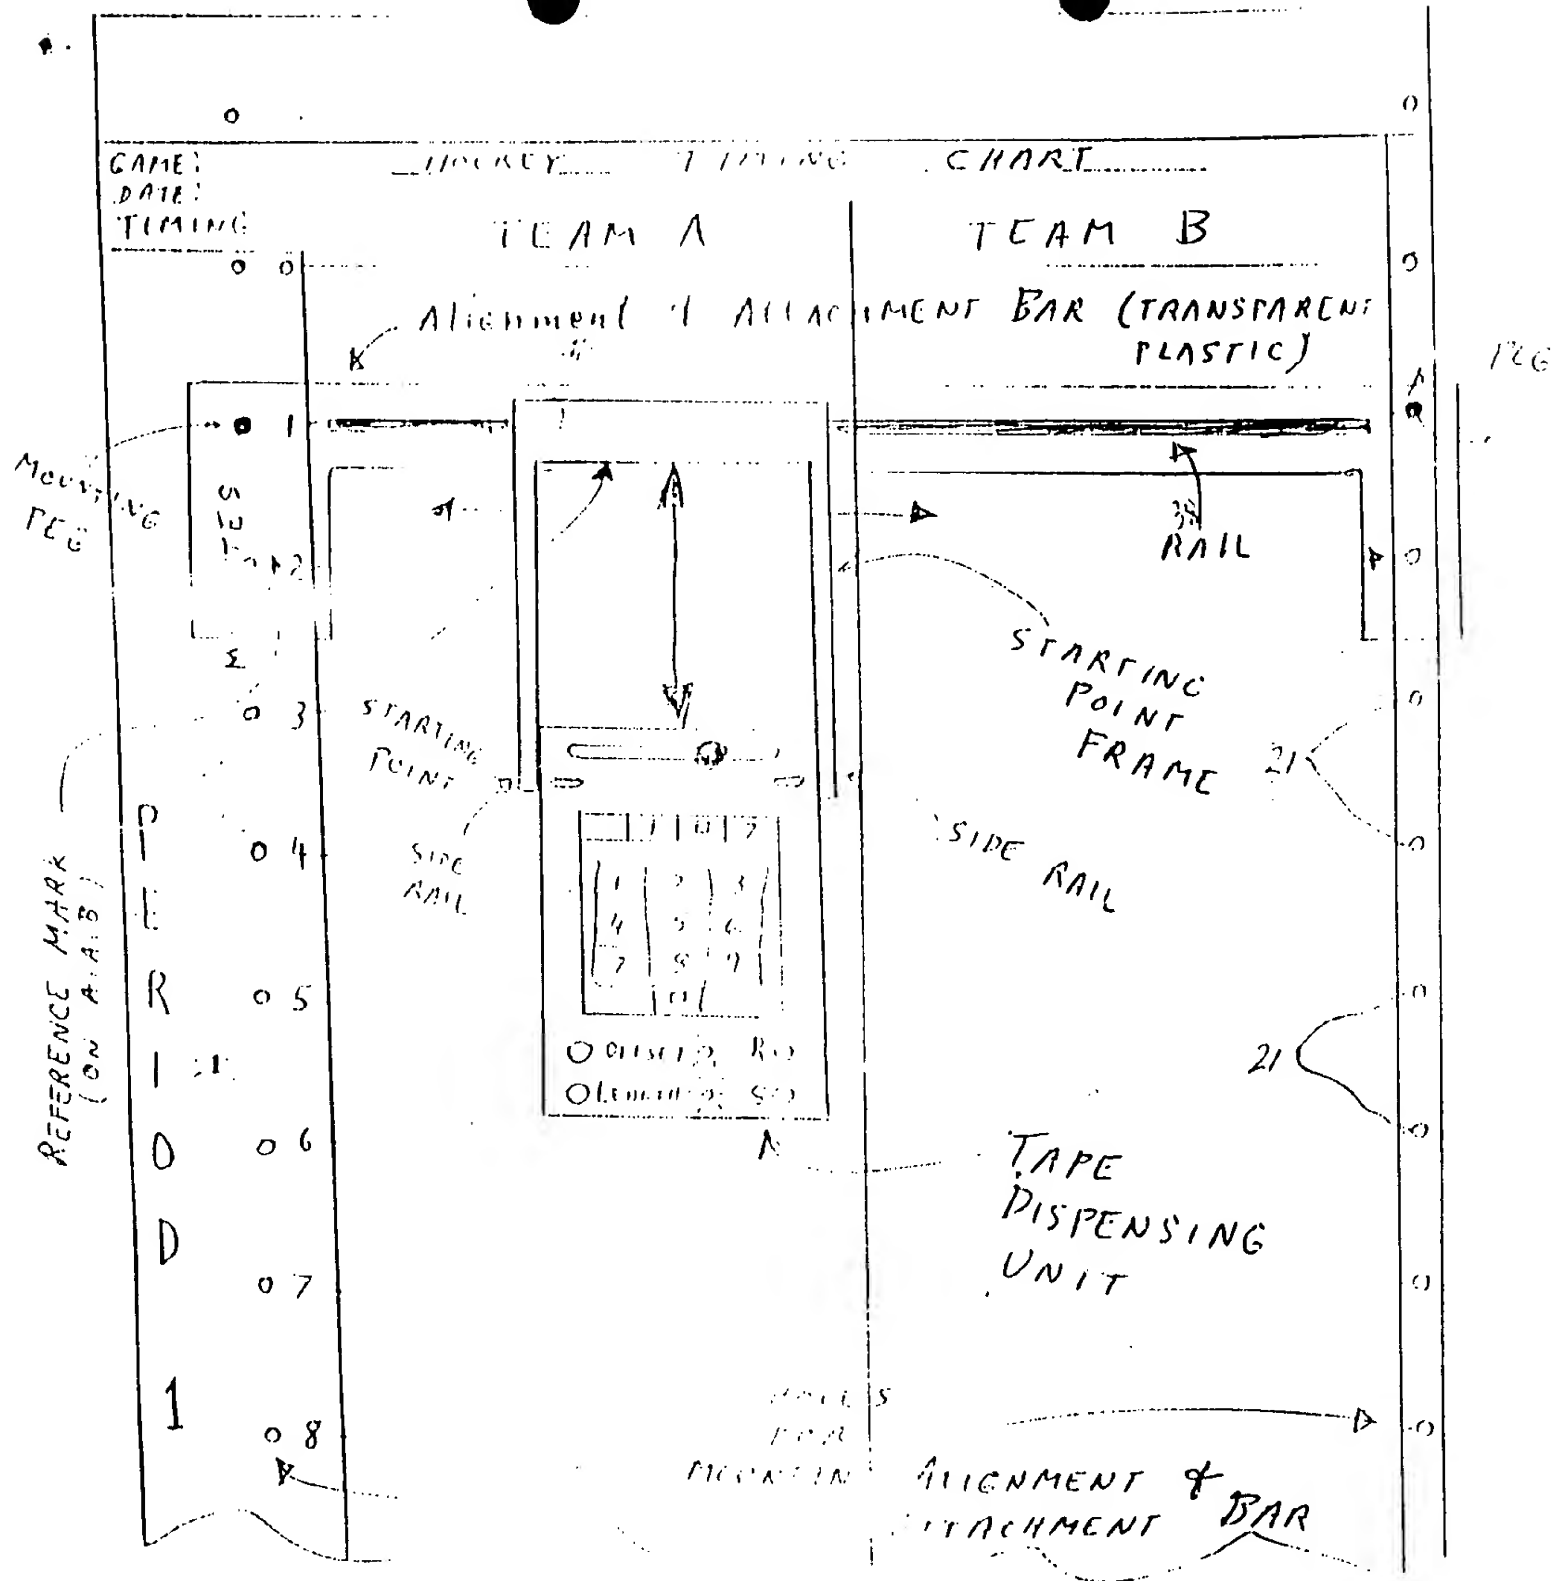 GAME:
DATE:
TIMING
HOCKEY TIMING CHART
TEAM A
TEAM B
Alignment & ATTACHMENT BAR (TRANSPARENT
PLASTIC)
PEG
1
MOUNTING
PEG
2
38
RAIL
STARTING
POINT
FRAME
3
STARTING
POINT
21
SIDE
RAIL
SIDE RAIL
4
REFERENCE MARK
(ON A.A.B)
PERIOD 1
1 2 3
4 5 6
7 8 9
0
5
21
6
TAPE
DISPENSING
UNIT
7
8
HOLES
FOR
MOUNTIN ALIGNMENT &
ATTACHMENT BAR